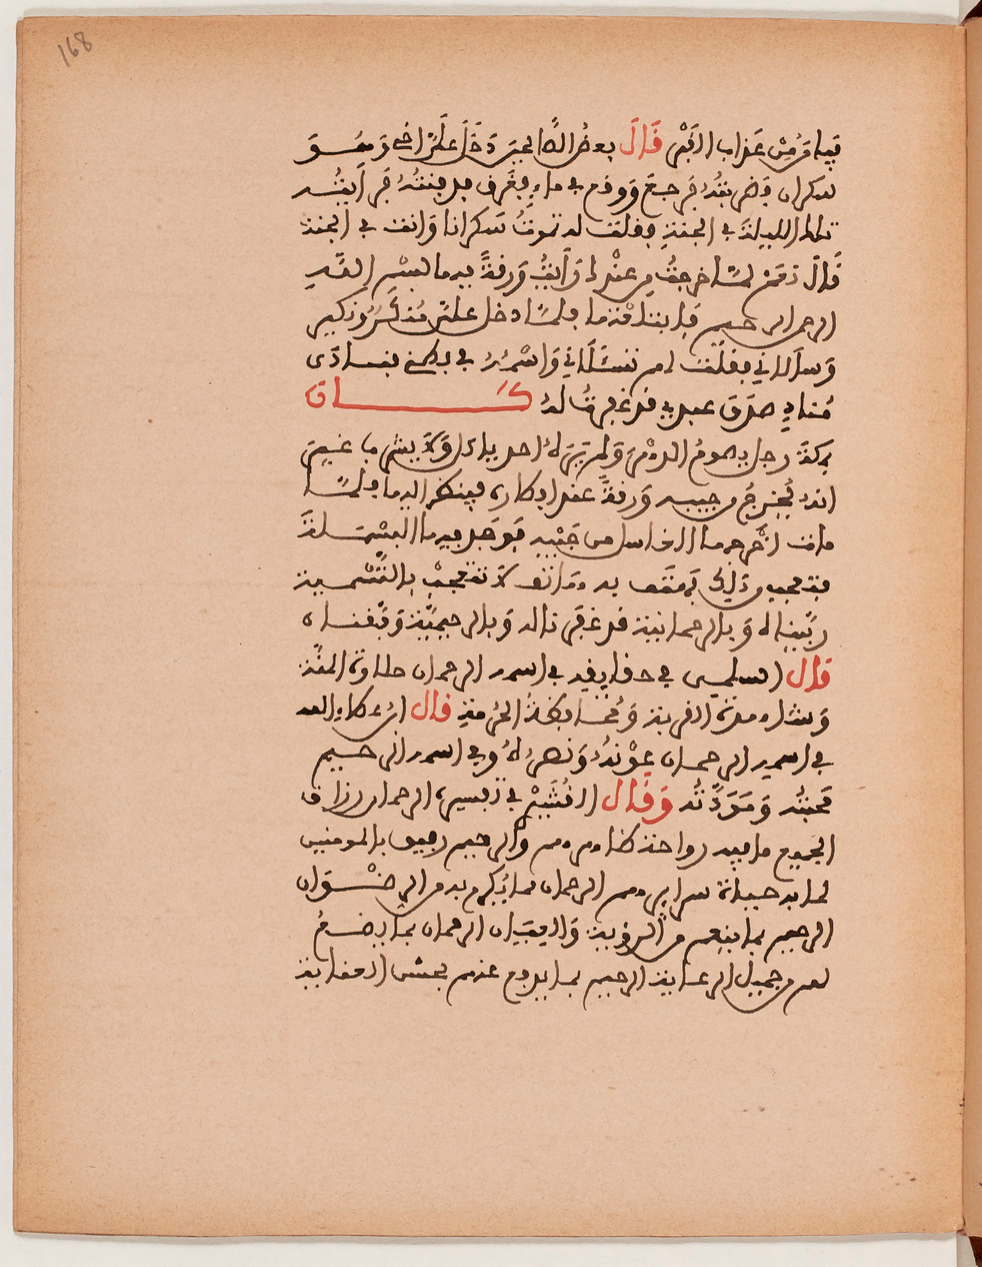 168
فيامن من عذاب القبر قال بعض الصالحين دخل علي اخي وهو
سكران فضربته فرجع ووقع في ماء فغرق فدفنته فرأيته
تلك الليلة في الجنة فقلت له تموت سكرانا وانت في الجنة
قال نعم لما خرجت من عندك رأيت ورقة فيها بسم الله
الرحمن الرحيم فابتلعتها فلما دخل علي منكر ونكير
وسألاني فقلت لهم تسئلاني واسمه في بطني فنادى
مناد صدق عبدي قد غفرت له كان
بمكة رجل يصوم الدهر ولم يره احد ياكل ولا يشرب غير
انه يخرج من جيبه ورقة عند افطاره فينظر اليها فلما
مات اخرجها الغاسل من جيبه فوجد فيها البسملة
فتعجب من ذلك فهتف به هاتف لا تتعجب بالتسمية
ربيناه وبالرحمانية قد غفرنا له وبالرحيمية وقفناه
قال السلمي في حقايقه في اسمه الرحمان حلاوة المنة
ومشاهدة القربة ومحافظة الحرمة قال ابن عطاء الله
في اسمه الرحمان عونه ونصره وفي اسمه الرحيم
محبته ومودته وقال القشيري في تفسيره الرحمان رزاق
الجميع ما فيه رواحة ظواهرهم والرحيم رفيق بالمومنين
لما به حياة سرايرهم الرحمان بما يكرم به من الرضوان
الرحيم بما ينعم من الروية والعيان الرحمان بما يضع
لهم من جميل الرعاية الرحيم بما يدفع عنهم بحسن العناية